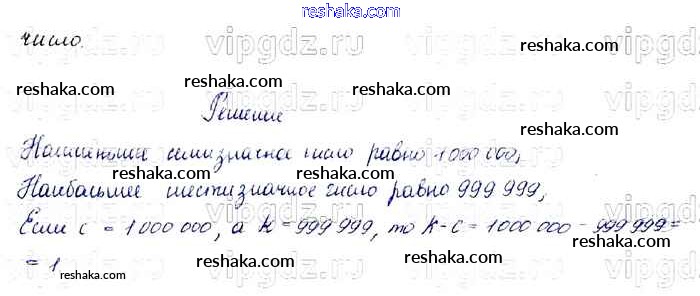 reshaka.com
число.
reshaka.com
reshaka.com reshaka.com
Решение
reshaka.com reshaka.com
Наименьшее семизначное число равно 1 000 000,
reshaka.com reshaka.com
Наибольшее шестизначное число равно 999 999,
Если с = 1 000 000, а к = 999 999, то к - с = 1 000 000 - 999 999 =
= 1
reshaka.com reshaka.com reshaka.com